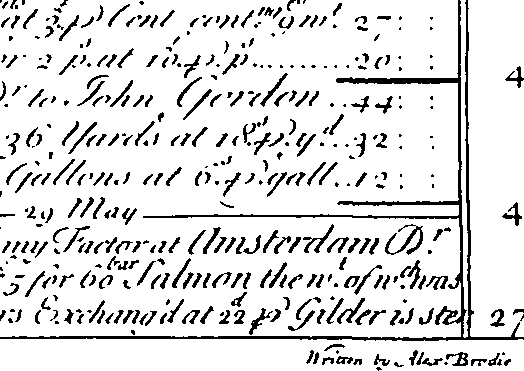 at 3 p Cent cont.ng 9 m.t 27 : :
or 2 p.s at 10 p. p.s ........ 20 : :
4
D.r to John Gordon .. 44 : :
36 Yards at 18.d p. y.d .. 32 : :
Gallons at 6.s p. gall .. 12 : :
29 May
4
my Factor at Amsterdam D.r
5 for 60 bar Salmon the w.t of w.ch was
rs Exchang'd at 22 d p Gilder is ster 27
Written by Alex.r Brodie